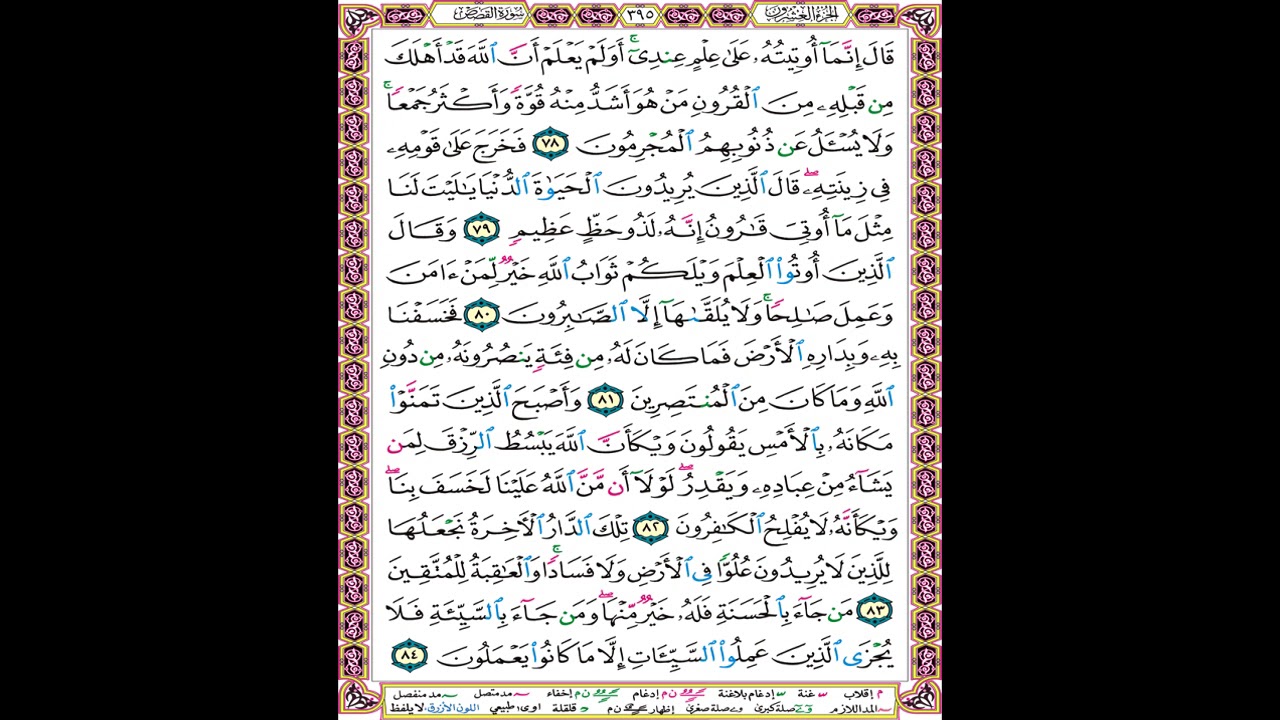 سورة القصص ٣٩٥ الجزء العشرون
قَالَ إِنَّمَآ أُوتِيتُهُۥ عَلَىٰ عِلْمٍ عِندِىٓ ۚ أَوَلَمْ يَعْلَمْ أَنَّ ٱللَّهَ قَدْ أَهْلَكَ
مِن قَبْلِهِۦ مِنَ ٱلْقُرُونِ مَنْ هُوَ أَشَدُّ مِنْهُ قُوَّةً وَأَكْثَرُ جَمْعًا ۚ
وَلَا يُسْـَٔلُ عَن ذُنُوبِهِمُ ٱلْمُجْرِمُونَ ٧٨ فَخَرَجَ عَلَىٰ قَوْمِهِۦ
فِى زِينَتِهِۦ ۖ قَالَ ٱلَّذِينَ يُرِيدُونَ ٱلْحَيَوٰةَ ٱلدُّنْيَا يَـٰلَيْتَ لَنَا
مِثْلَ مَآ أُوتِىَ قَـٰرُونُ إِنَّهُۥ لَذُو حَظٍّ عَظِيمٍ ٧٩ وَقَالَ
ٱلَّذِينَ أُوتُوا۟ ٱلْعِلْمَ وَيْلَكُمْ ثَوَابُ ٱللَّهِ خَيْرٌ لِّمَنْ ءَامَنَ
وَعَمِلَ صَـٰلِحًا ۚ وَلَا يُلَقَّىٰهَآ إِلَّا ٱلصَّـٰبِرُونَ ٨٠ فَخَسَفْنَا
بِهِۦ وَبِدَارِهِ ٱلْأَرْضَ فَمَا كَانَ لَهُۥ مِن فِئَةٍ يَنصُرُونَهُۥ مِن دُونِ
ٱللَّهِ وَمَا كَانَ مِنَ ٱلْمُنتَصِرِينَ ٨١ وَأَصْبَحَ ٱلَّذِينَ تَمَنَّوْا۟
مَكَانَهُۥ بِٱلْأَمْسِ يَقُولُونَ وَيْكَأَنَّ ٱللَّهَ يَبْسُطُ ٱلرِّزْقَ لِمَن
يَشَآءُ مِنْ عِبَادِهِۦ وَيَقْدِرُ ۖ لَوْلَآ أَن مَّنَّ ٱللَّهُ عَلَيْنَا لَخَسَفَ بِنَا ۖ
وَيْكَأَنَّهُۥ لَا يُفْلِحُ ٱلْكَـٰفِرُونَ ٨٢ تِلْكَ ٱلدَّارُ ٱلْـَٔاخِرَةُ نَجْعَلُهَا
لِلَّذِينَ لَا يُرِيدُونَ عُلُوًّا فِى ٱلْأَرْضِ وَلَا فَسَادًا ۚ وَٱلْعَـٰقِبَةُ لِلْمُتَّقِينَ
٨٣ مَن جَآءَ بِٱلْحَسَنَةِ فَلَهُۥ خَيْرٌ مِّنْهَا ۖ وَمَن جَآءَ بِٱلسَّيِّئَةِ فَلَا
يُجْزَى ٱلَّذِينَ عَمِلُوا۟ ٱلسَّيِّـَٔاتِ إِلَّا مَا كَانُوا۟ يَعْمَلُونَ ٨٤
م إقلاب غنة إدغام بلاغنة ن م إدغام ن م إخفاء مد متصل مد منفصل
المد اللازم صلة كبرى صلة صغرى إظهار ن م قلقلة اوى طبيعي اللون الأزرق لا يلفظ